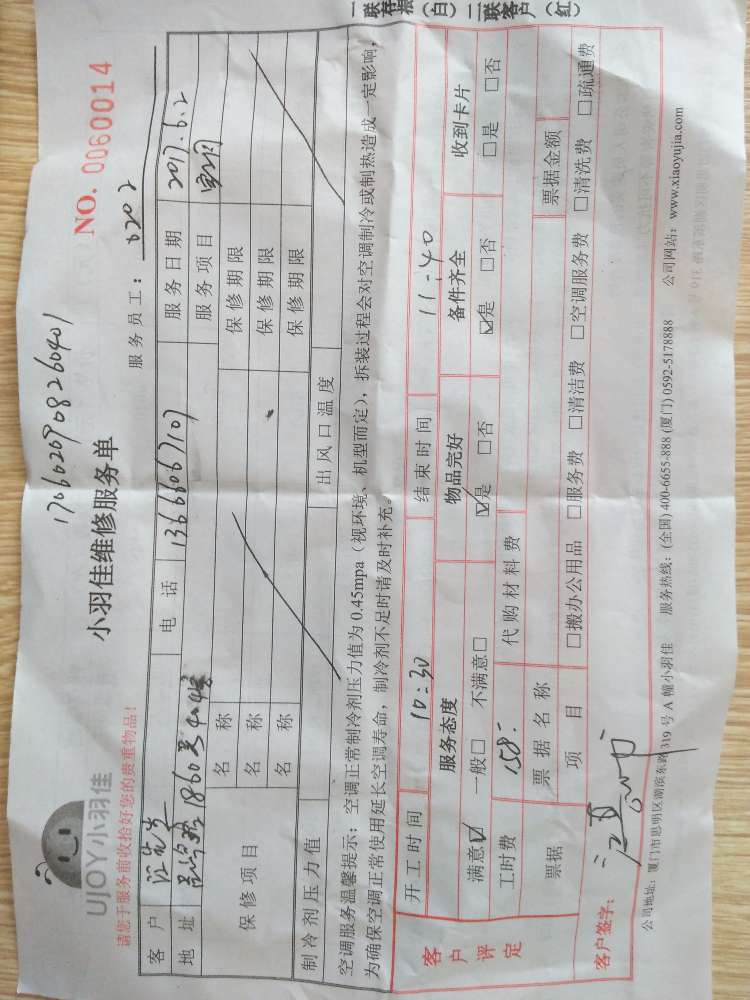 UJOY小羽佳
请您于服务前收拾好您的贵重物品!
1706020908260401
小羽佳维修服务单
NO. 0060014
服务员工: 0202
客户 江先生 电话 13666067107 服务日期 2017.6.2
地址 1860 服务项目
保修项目 名称 保修期限
名称 保修期限
名称 保修期限
制冷剂压力值 出风口温度
空调服务温馨提示:空调正常制冷剂压力值为0.45mpa(视环境、机型而定),拆装过程会对空调制冷或制热造成一定影响,
为确保空调正常使用延长空调寿命,制冷剂不足时请及时补充。
客户评定
开工时间 10:30 结束时间 11:40
服务态度 物品完好 备件齐全 收到卡片
满意☑ 一般□ 不满意□ ☑是 □否 ☑是 □否 □是 □否
工时费 158- 代购材料费
票据 票据名称 票据金额
项目 □搬办公用品 □服务费 □清洁费 □空调服务费 □清洗费 □疏通费
客户签字:
公司地址:厦门市思明区湖滨东路319号A幢小羽佳 服务热线:(全国)400-6655-888 (厦门)0592-5178888 公司网站:www.xiaoyujia.com
一联存根(白)二联客户(红)